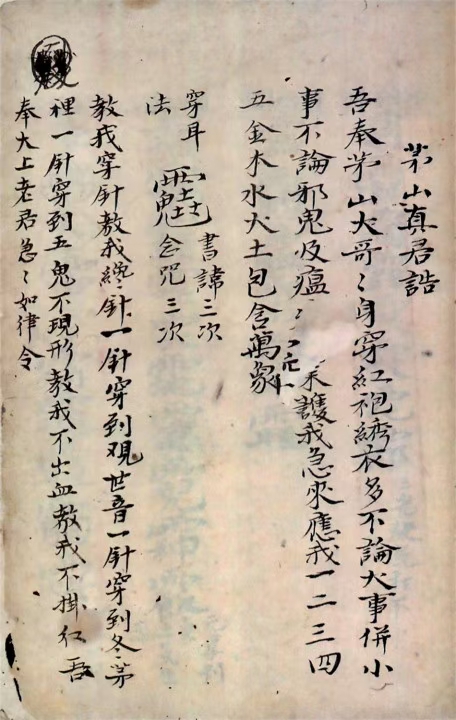 茅山真君誥
吾奉茅山大哥〻身穿紅袍綉衣多不論大事併小
事不論邪鬼及瘟〻 來護我急來應我一二三四
五金木水火土包含萬象
穿耳 書諱三次
法 念咒三次
教我穿針教我纔針一針穿到观世音一針穿到冬茅
裡一針穿到五鬼不現形教我不出血教我不掛红吾
奉大上老君急〻如律令